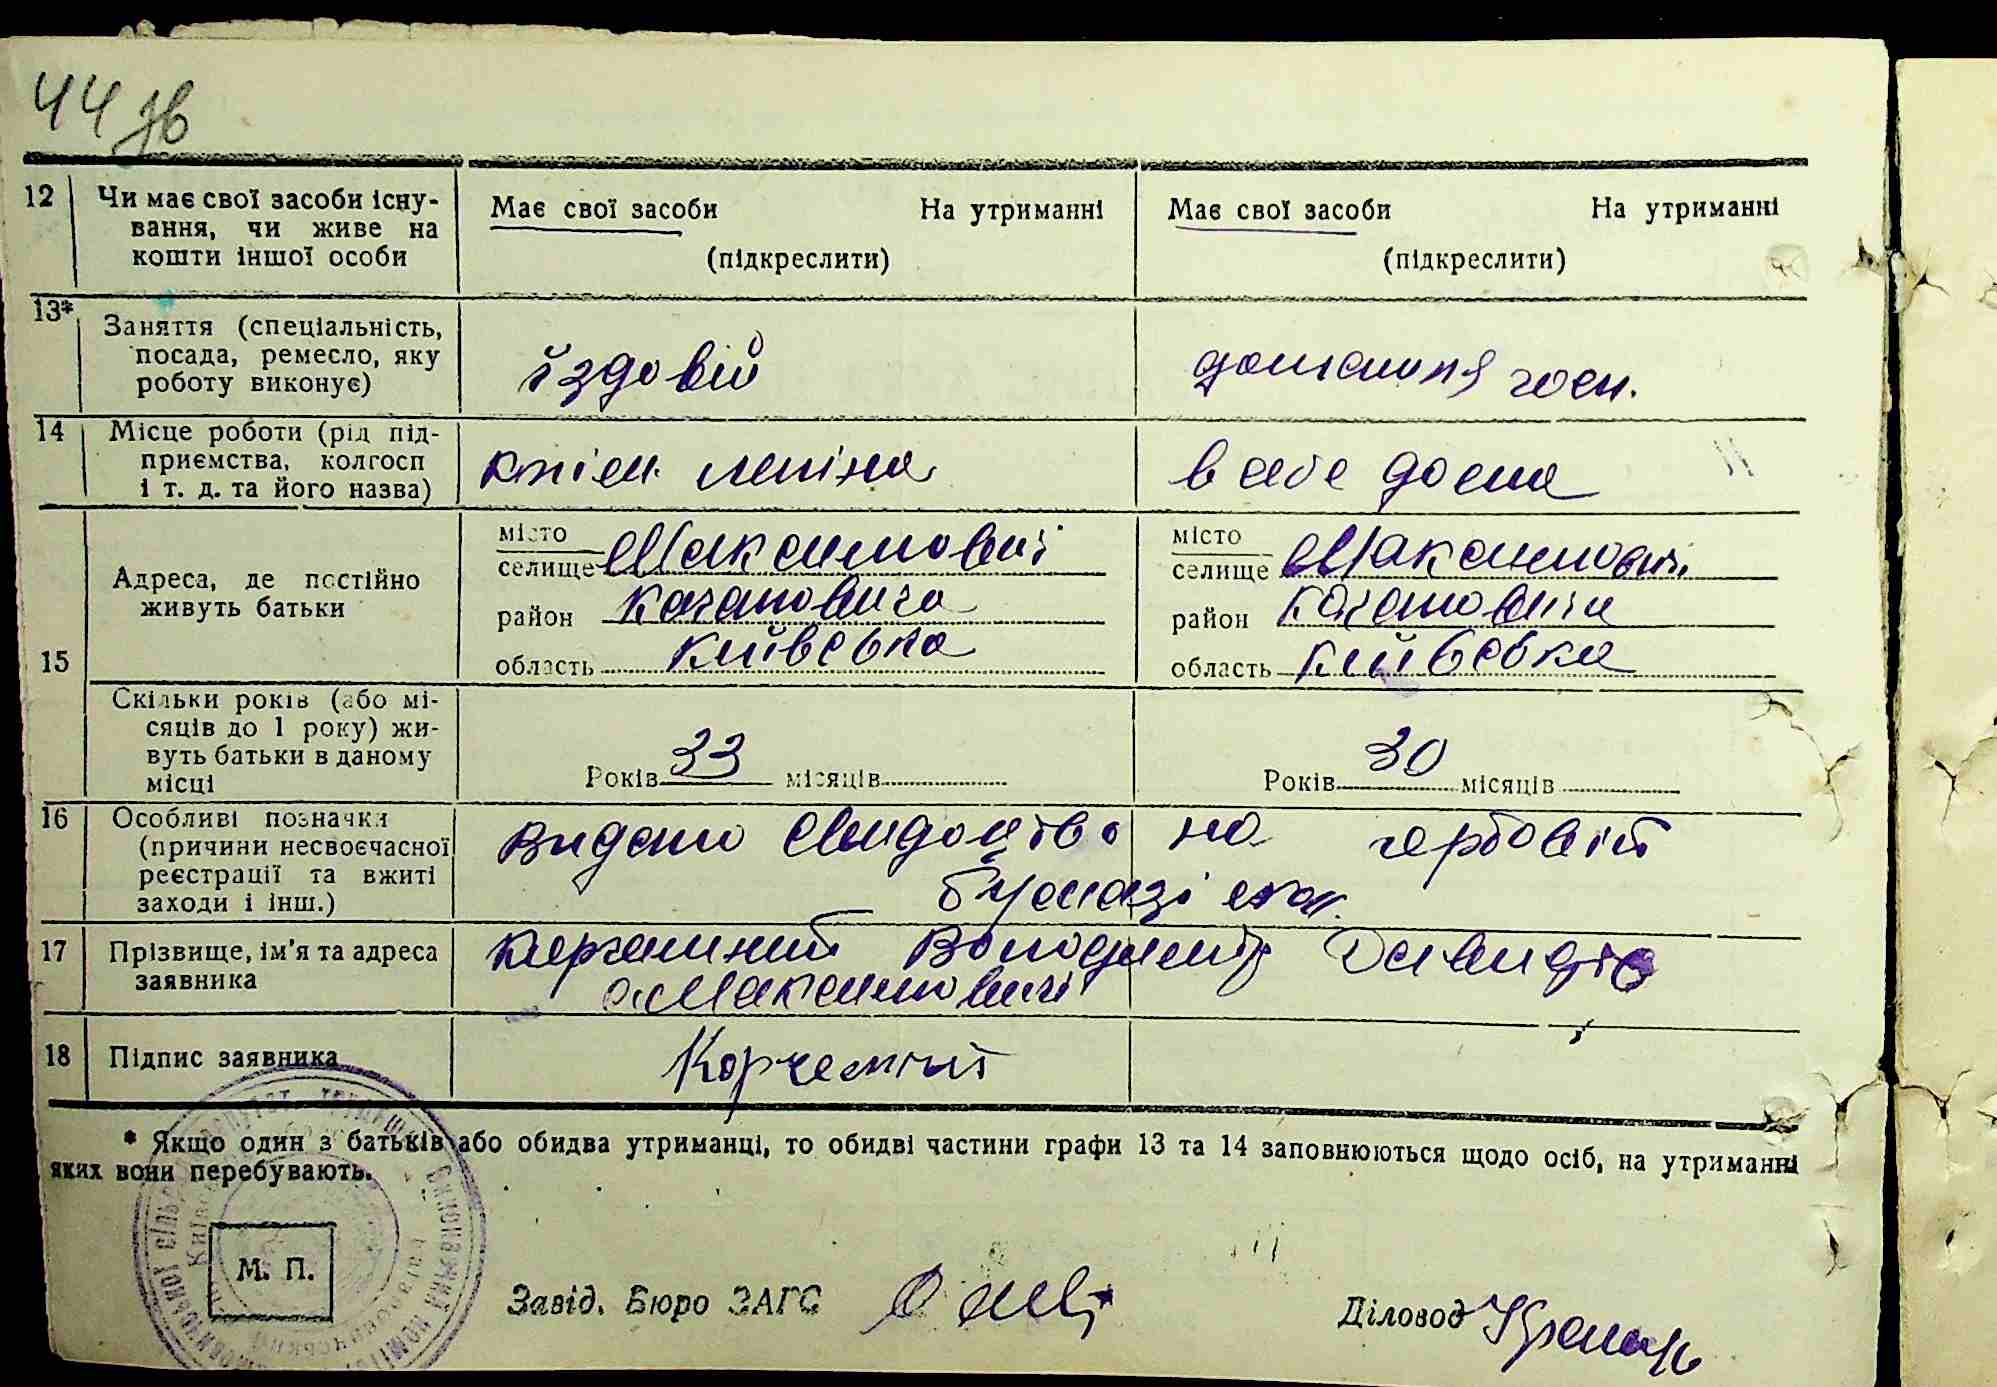 44 зв
12 Чи має свої засоби існу- Має свої засоби На утриманні Має свої засоби На утриманні
вання, чи живе на
кошти іншої особи (підкреслити) (підкреслити)
13*
Заняття (спеціальність,
посада, ремесло, яку їздовий домашня госп.
роботу виконує)
14 Місце роботи (рід під-
приємства, колгосп леніна в себе дома
і т. д. та його назва)
15
Адреса, де постійно
живуть батьки
місто місто
селище Максимовичі селище Максимовичі
район Кагановича район Кагановича
область Київська область Київська
Скільки років (або мі-
сяців до 1 року) жи-
вуть батьки в даному
місці Років 33 місяців Років 30 місяців
16 Особливі позначки видано свидоцтво на гербовій
(причини несвоєчасної
реєстрації та вжиті бумазі
заходи і інш.)
17 Прізвище, ім'я та адреса Корчемний Володимир Давидів
заявника с. Максимовичі
18 Підпис заявника Корчемний
* Якщо один з батьків або обидва утриманці, то обидві частини графи 13 та 14 заповнюються щодо осіб, на утриманні
яких вони перебувають.
М. П.
Завід. Бюро ЗАГС Діловод